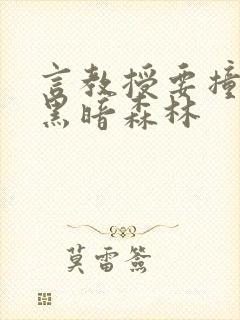 言教授要撞
黑暗森林
莫雷签